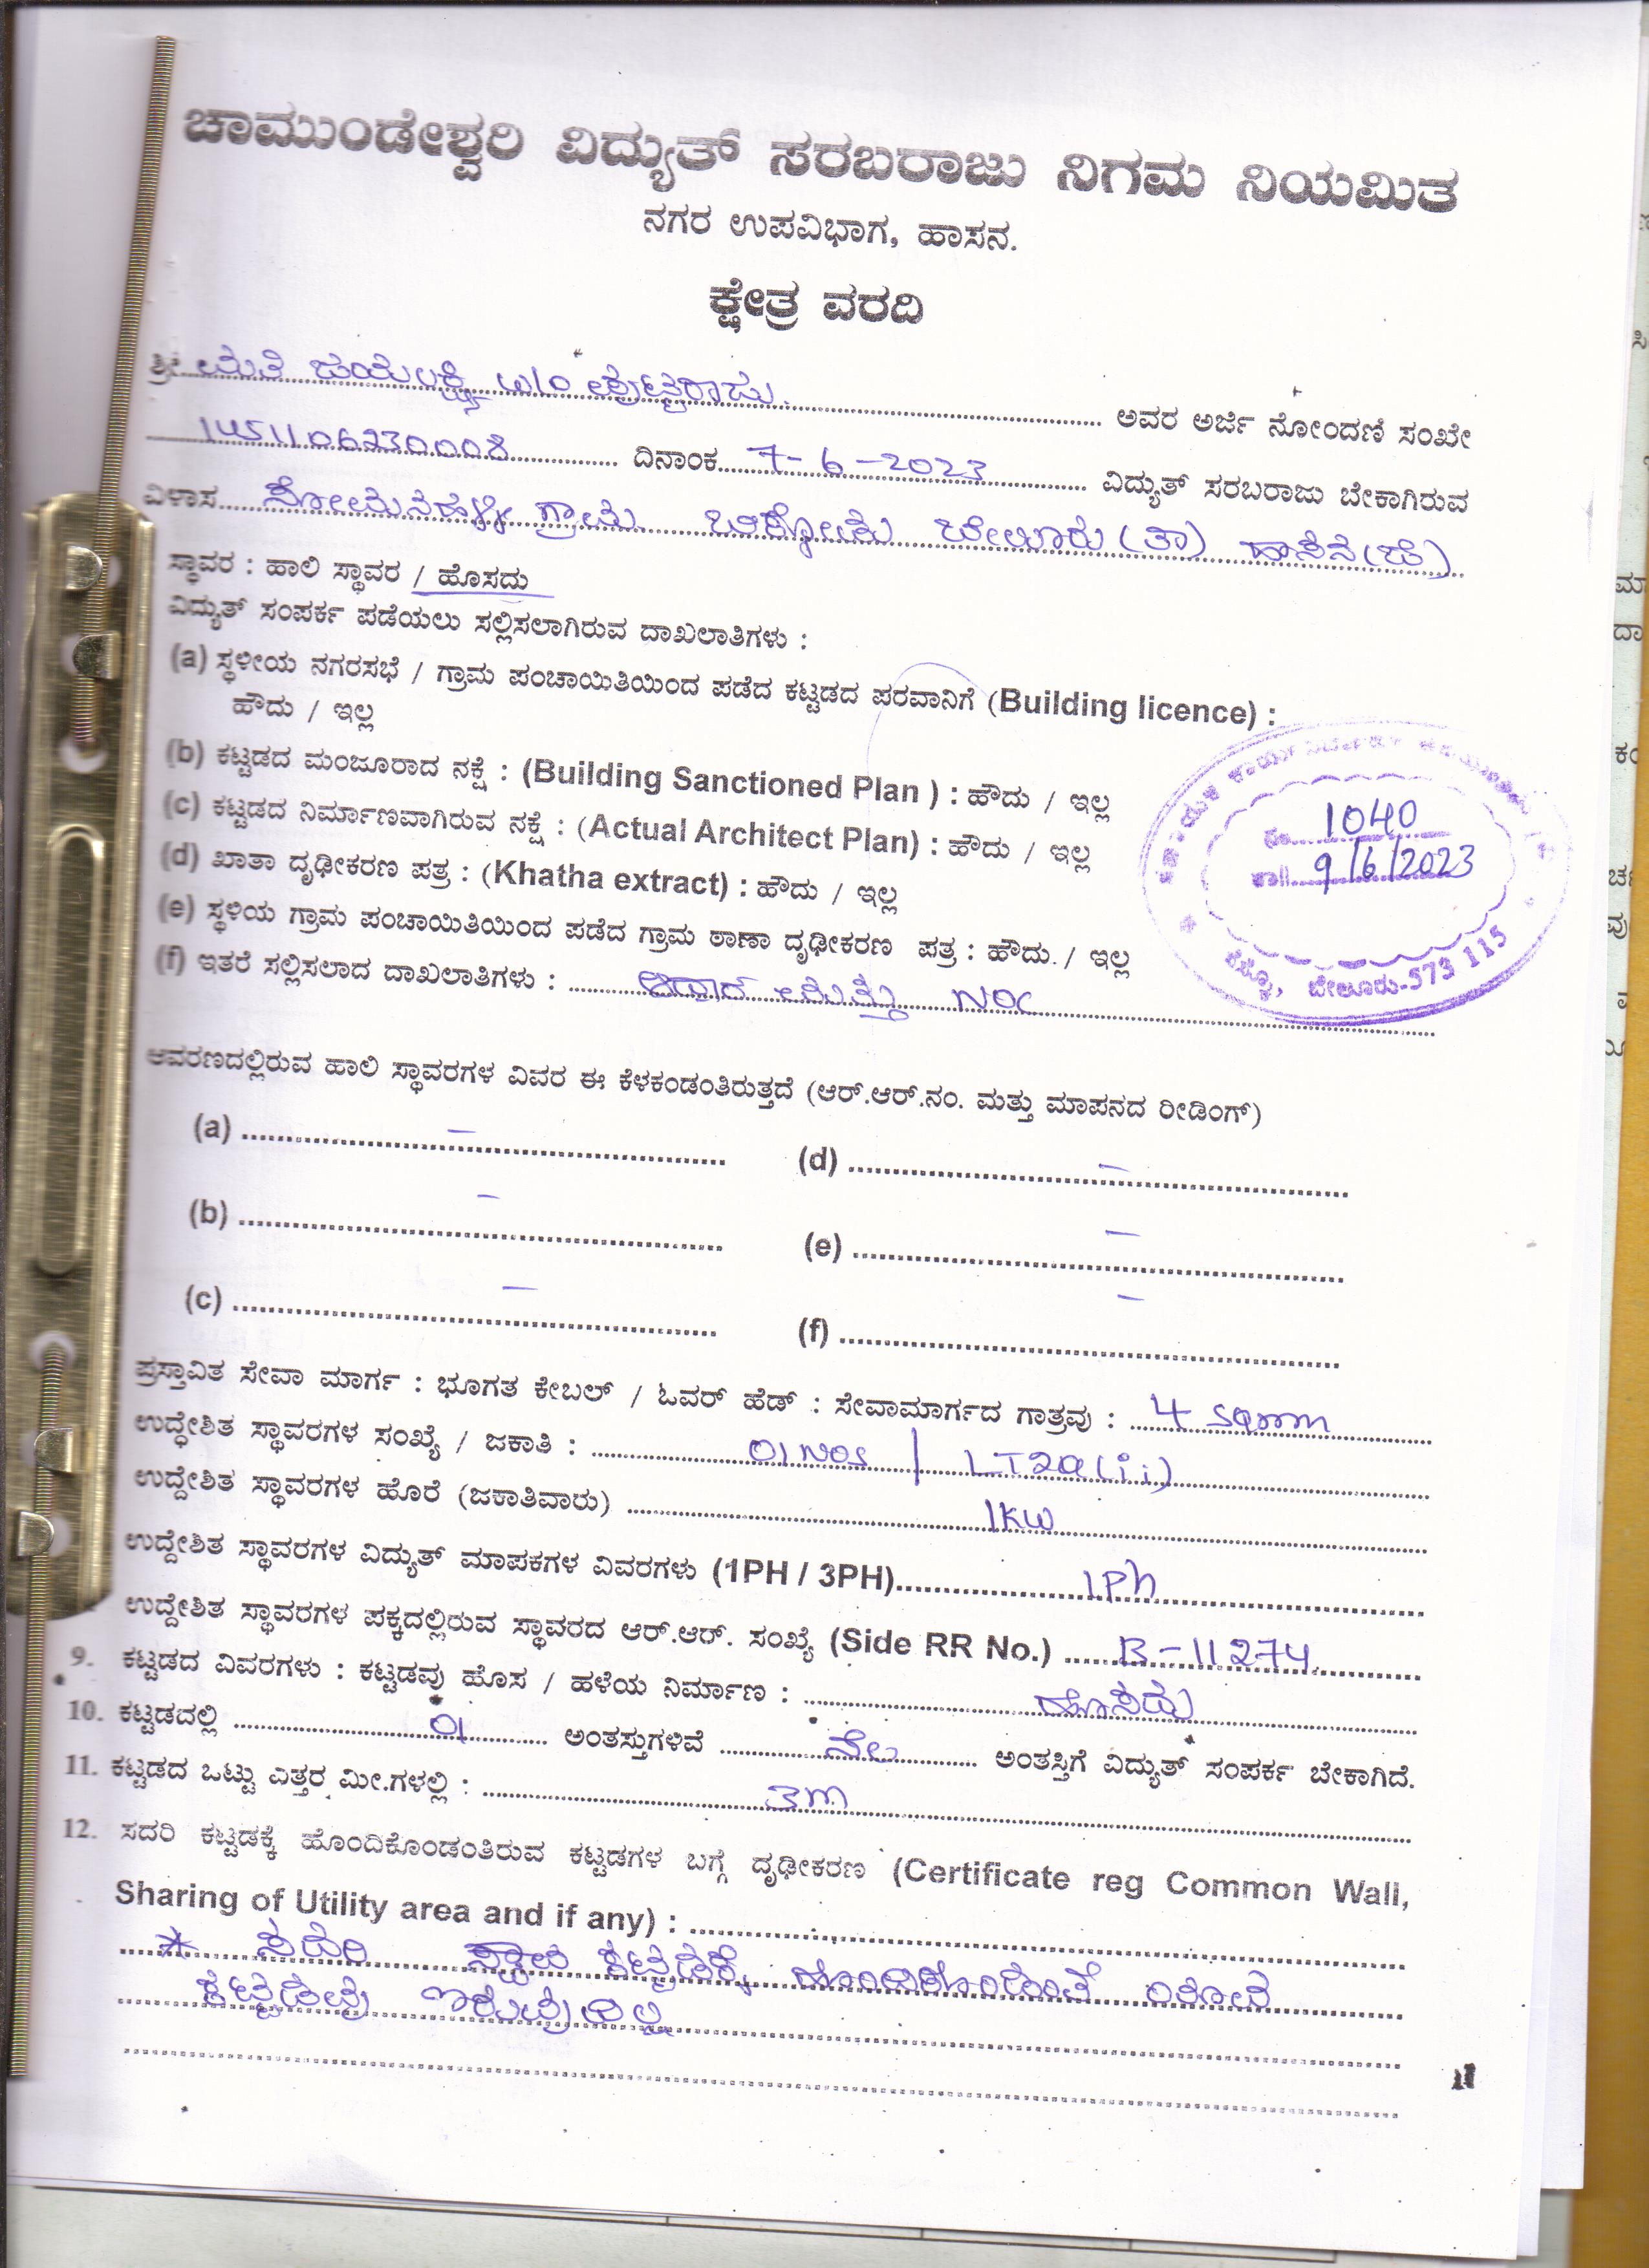 ಚಾಮುಂಡೇಶ್ವರಿ ವಿದ್ಯುತ್ ಸರಬರಾಜು ನಿಗಮ ನಿಯಮಿತ
ನಗರ ಉಪವಿಭಾಗ, ಹಾಸನ.
ಕ್ಷೇತ್ರ ವರದಿ
ಶ್ರೀಮತಿ ಜಯಲಕ್ಷ್ಮಿ W/O ಪುಟ್ಟರಾಜು. ಅವರ ಅರ್ಜಿ ನೋಂದಣಿ ಸಂಖೇ
1451106230008 ದಿನಾಂಕ 7-6-2023 ವಿದ್ಯುತ್ ಸರಬರಾಜು ಬೇಕಾಗಿರುವ
ವಿಳಾಸ ಸೋಮನಹಳ್ಳಿ ಗ್ರಾಮ ಬಿಕ್ಕೋಡು ಬೇಲೂರು (ತಾ) ಹಾಸನ (ಜಿ)
ಸ್ಥಾವರ : ಹಾಲಿ ಸ್ಥಾವರ / ಹೊಸದು
ವಿದ್ಯುತ್ ಸಂಪರ್ಕ ಪಡೆಯಲು ಸಲ್ಲಿಸಲಾಗಿರುವ ದಾಖಲಾತಿಗಳು :
(a) ಸ್ಥಳೀಯ ನಗರಸಭೆ / ಗ್ರಾಮ ಪಂಚಾಯಿತಿಯಿಂದ ಪಡೆದ ಕಟ್ಟಡದ ಪರವಾನಿಗೆ (Building licence) :
ಹೌದು / ಇಲ್ಲ
(b) ಕಟ್ಟಡದ ಮಂಜೂರಾದ ನಕ್ಷೆ : (Building Sanctioned Plan ) : ಹೌದು / ಇಲ್ಲ
(c) ಕಟ್ಟಡದ ನಿರ್ಮಾಣವಾಗಿರುವ ನಕ್ಷೆ : (Actual Architect Plan) : ಹೌದು / ಇಲ್ಲ
(d) ಖಾತಾ ದೃಢೀಕರಣ ಪತ್ರ : (Khatha extract) : ಹೌದು / ಇಲ್ಲ
(e) ಸ್ಥಳಿಯ ಗ್ರಾಮ ಪಂಚಾಯಿತಿಯಿಂದ ಪಡೆದ ಗ್ರಾಮ ಠಾಣಾ ದೃಢೀಕರಣ ಪತ್ರ : ಹೌದು. / ಇಲ್ಲ
(f) ಇತರೆ ಸಲ್ಲಿಸಲಾದ ದಾಖಲಾತಿಗಳು : ಆಧಾರ್ ಮತ್ತು NOC
ನಂ. 1040
ದಿನಾಂ 9/6/2023
ಬೇಲೂರು-573 115
ಆವರಣದಲ್ಲಿರುವ ಹಾಲಿ ಸ್ಥಾವರಗಳ ವಿವರ ಈ ಕೆಳಕಂಡಂತಿರುತ್ತದೆ (ಆರ್.ಆರ್.ನಂ. ಮತ್ತು ಮಾಪನದ ರೀಡಿಂಗ್)
(a) – (d) –
(b) – (e) –
(c) – (f) –
ಪ್ರಸ್ತಾವಿತ ಸೇವಾ ಮಾರ್ಗ : ಭೂಗತ ಕೇಬಲ್ / ಓವರ್ ಹೆಡ್ : ಸೇವಾಮಾರ್ಗದ ಗಾತ್ರವು : 4 sqmm
ಉದ್ಧೇಶಿತ ಸ್ಥಾವರಗಳ ಸಂಖ್ಯೆ / ಜಕಾತಿ : 01 Nos | LT2a(ii)
ಉದ್ದೇಶಿತ ಸ್ಥಾವರಗಳ ಹೊರೆ (ಜಕಾತಿವಾರು) 1kw
ಉದ್ದೇಶಿತ ಸ್ಥಾವರಗಳ ವಿದ್ಯುತ್ ಮಾಪಕಗಳ ವಿವರಗಳು (1PH / 3PH) 1Ph
ಉದ್ದೇಶಿತ ಸ್ಥಾವರಗಳ ಪಕ್ಕದಲ್ಲಿರುವ ಸ್ಥಾವರದ ಆರ್.ಆರ್. ಸಂಖ್ಯೆ (Side RR No.) B-11274
9. ಕಟ್ಟಡದ ವಿವರಗಳು : ಕಟ್ಟಡವು ಹೊಸ / ಹಳೆಯ ನಿರ್ಮಾಣ : ಹೊಸದು
10. ಕಟ್ಟಡದಲ್ಲಿ 01 ಅಂತಸ್ತುಗಳಿವೆ ನೆಲ ಅಂತಸ್ತಿಗೆ ವಿದ್ಯುತ್ ಸಂಪರ್ಕ ಬೇಕಾಗಿದೆ.
11. ಕಟ್ಟಡದ ಒಟ್ಟು ಎತ್ತರ ಮೀ.ಗಳಲ್ಲಿ : 3m
12. ಸದರಿ ಕಟ್ಟಡಕ್ಕೆ ಹೊಂದಿಕೊಂಡಂತಿರುವ ಕಟ್ಟಡಗಳ ಬಗ್ಗೆ ದೃಢೀಕರಣ (Certificate reg Common Wall,
Sharing of Utility area and if any) :
* ಸದರಿ ಸ್ಥಾವರ ಕಟ್ಟಡಕ್ಕೆ ಹೊಂದಿಕೊಂಡಂತೆ ಯಾವ
ಕಟ್ಟಡವು ಇರುವುದಿಲ್ಲ